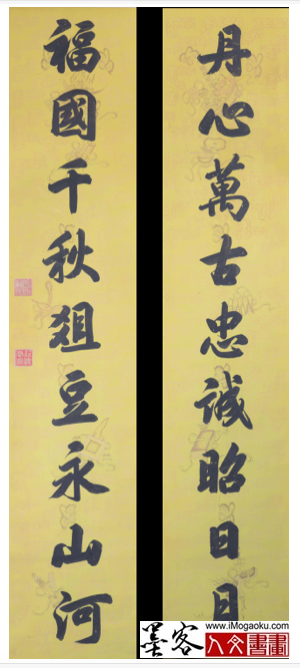 丹心萬古忠誠昭日月
福國千秋俎豆永山河
www.iMogaoku.com
墨客人文書畫